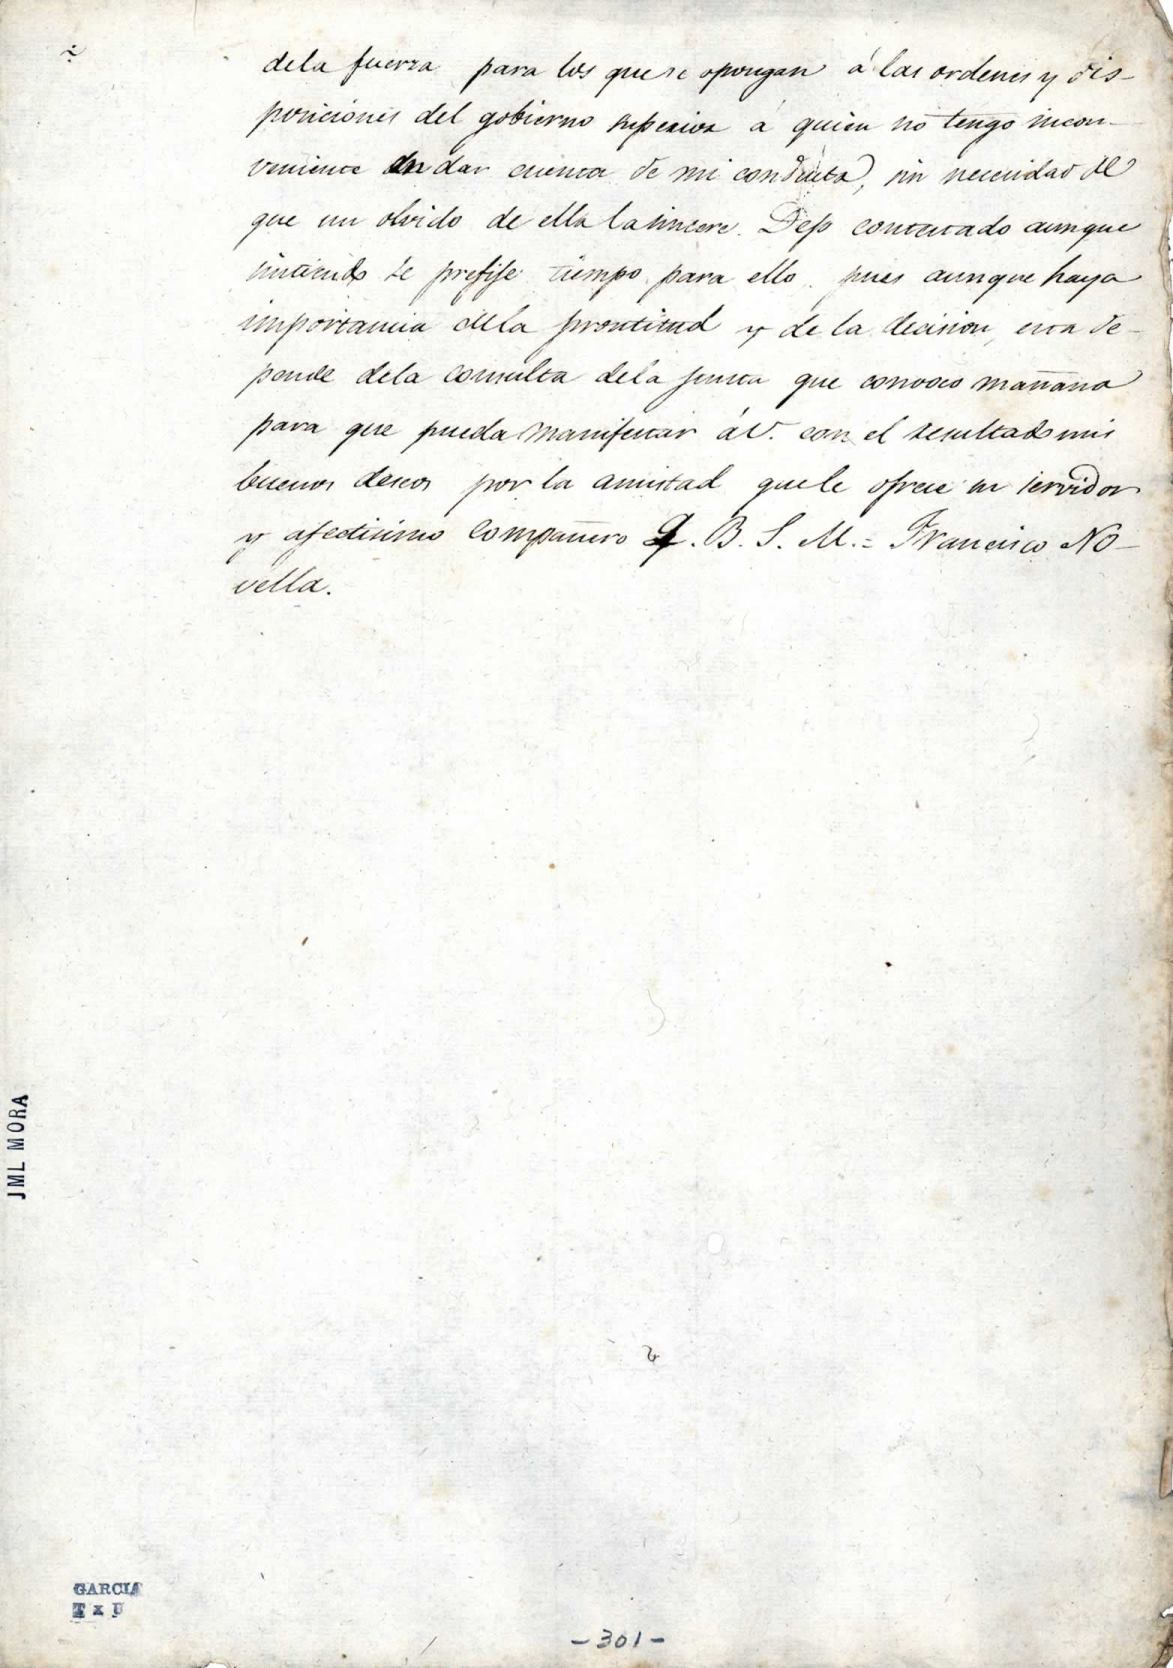 dela fuerza para los que se opongan á las ordenes y dis-
posiciones del gobierno superior á quien no tengo incon-
veniente en dar cuenta de mi conducta, sin necesidad de
que un olvido de ella la sincere. Dejo contestado aunque
sintiendo se prefije tiempo para ello pues aunque haya
importancia dela prontitud y de la decision, esta de-
pende dela consulta dela junta que convoco mañana
para que pueda manifestar á V. con el resultado mis
buenos deseos por la amistad que le ofrece su servidor
y afectisimo compañero Q. B. S. M. = Francisco No-
vella.
JML MORA
GARCIA
T x U
-301-